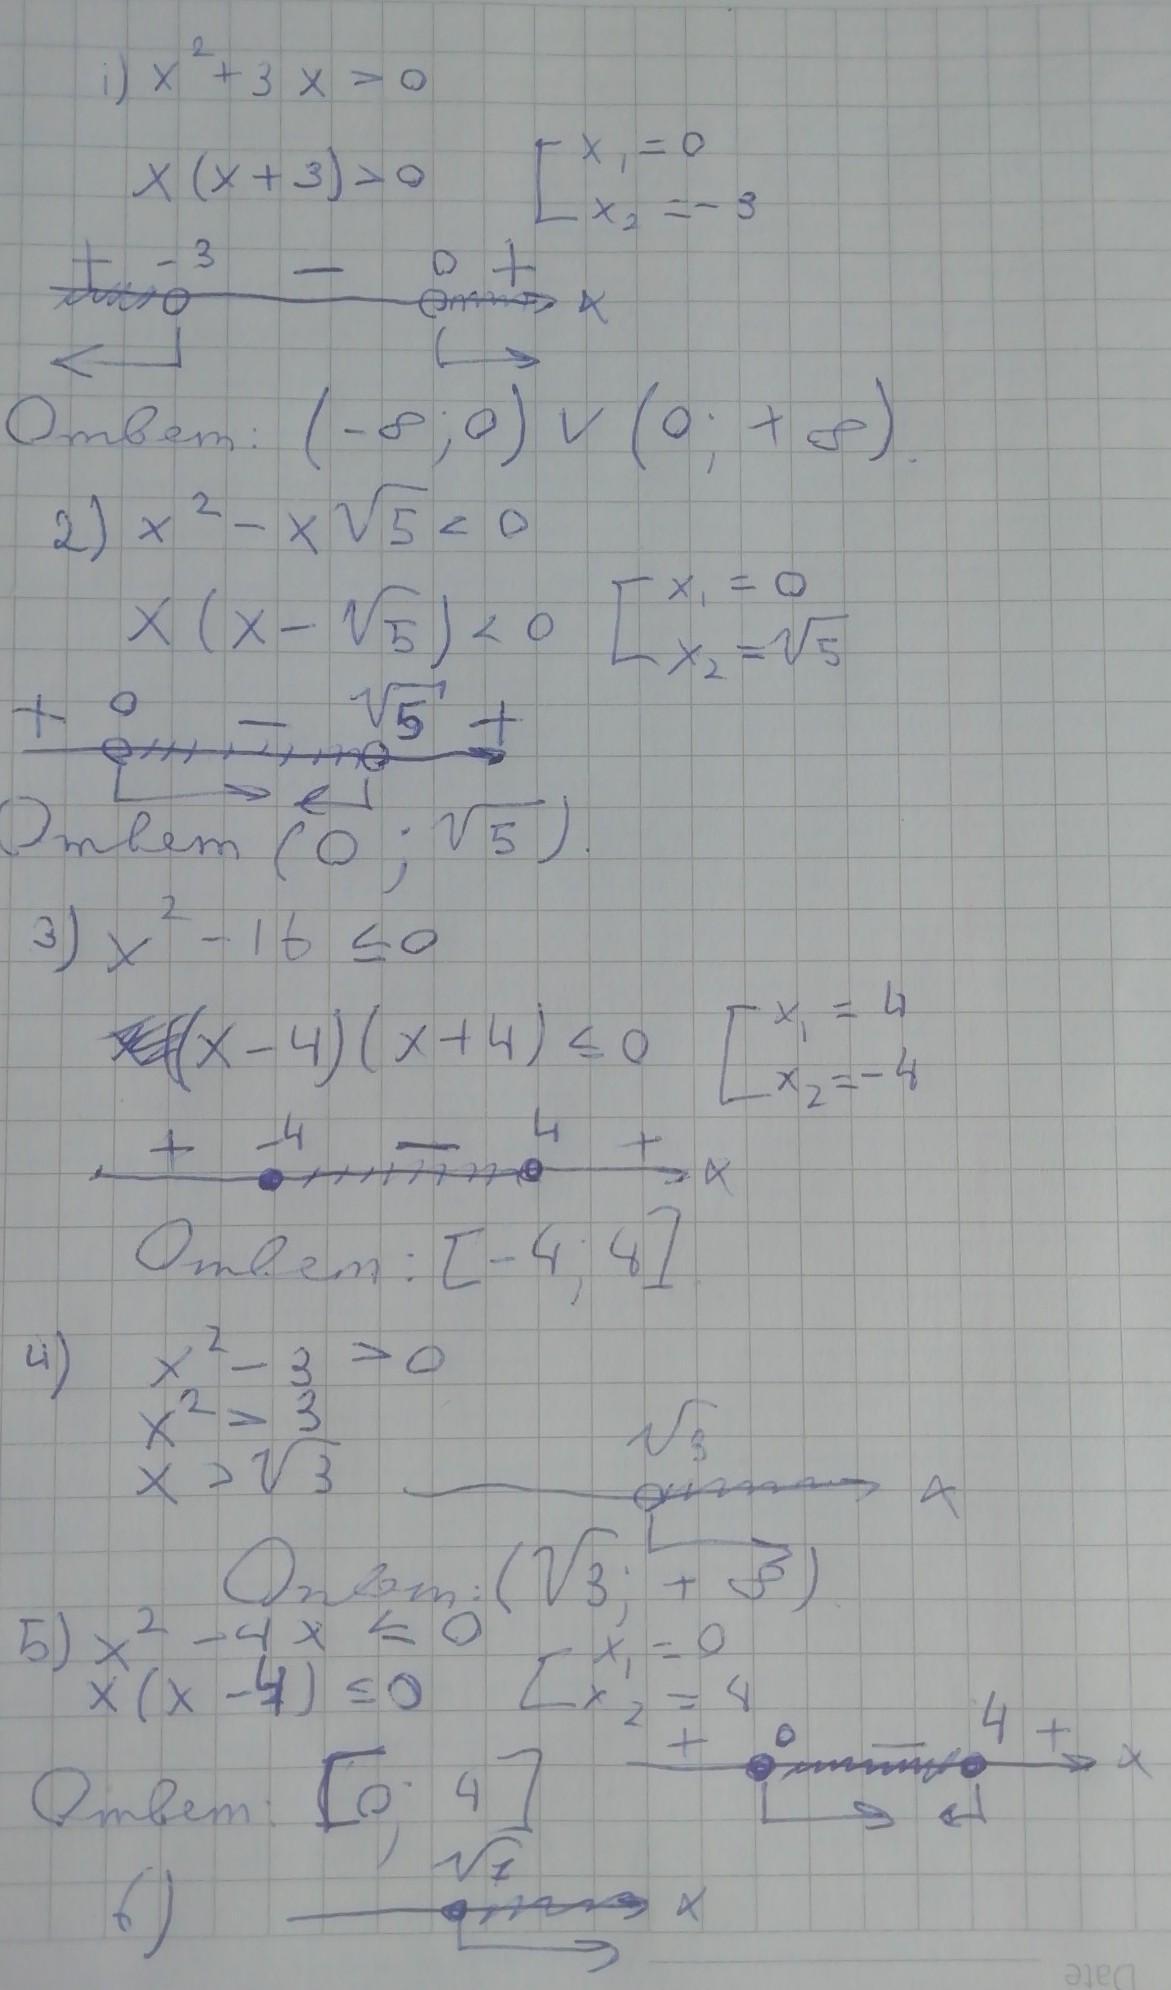 1) x² + 3x > 0
x(x + 3) > 0 [ x₁ = 0
x₂ = -3
+ -3 — 0 + x
Ответ: (-∞; 0) ∨ (0; +∞).
2) x² - x√5 < 0
x(x - √5) < 0 [ x₁ = 0
x₂ = √5
+ 0 — √5 +
Ответ (0; √5).
3) x² - 16 ≤ 0
(x - 4)(x + 4) ≤ 0 [ x₁ = 4
x₂ = -4
+ -4 — 4 + x
Ответ: [-4; 4].
4) x² - 3 > 0
x² > 3
x > √3
√3 x
Ответ: (√3; +∞)
5) x² - 4x ≤ 0
x(x - 4) ≤ 0 [ x₁ = 0
x₂ = 4
+ 0 — 4 + x
Ответ: [0; 4]
6) x
Date